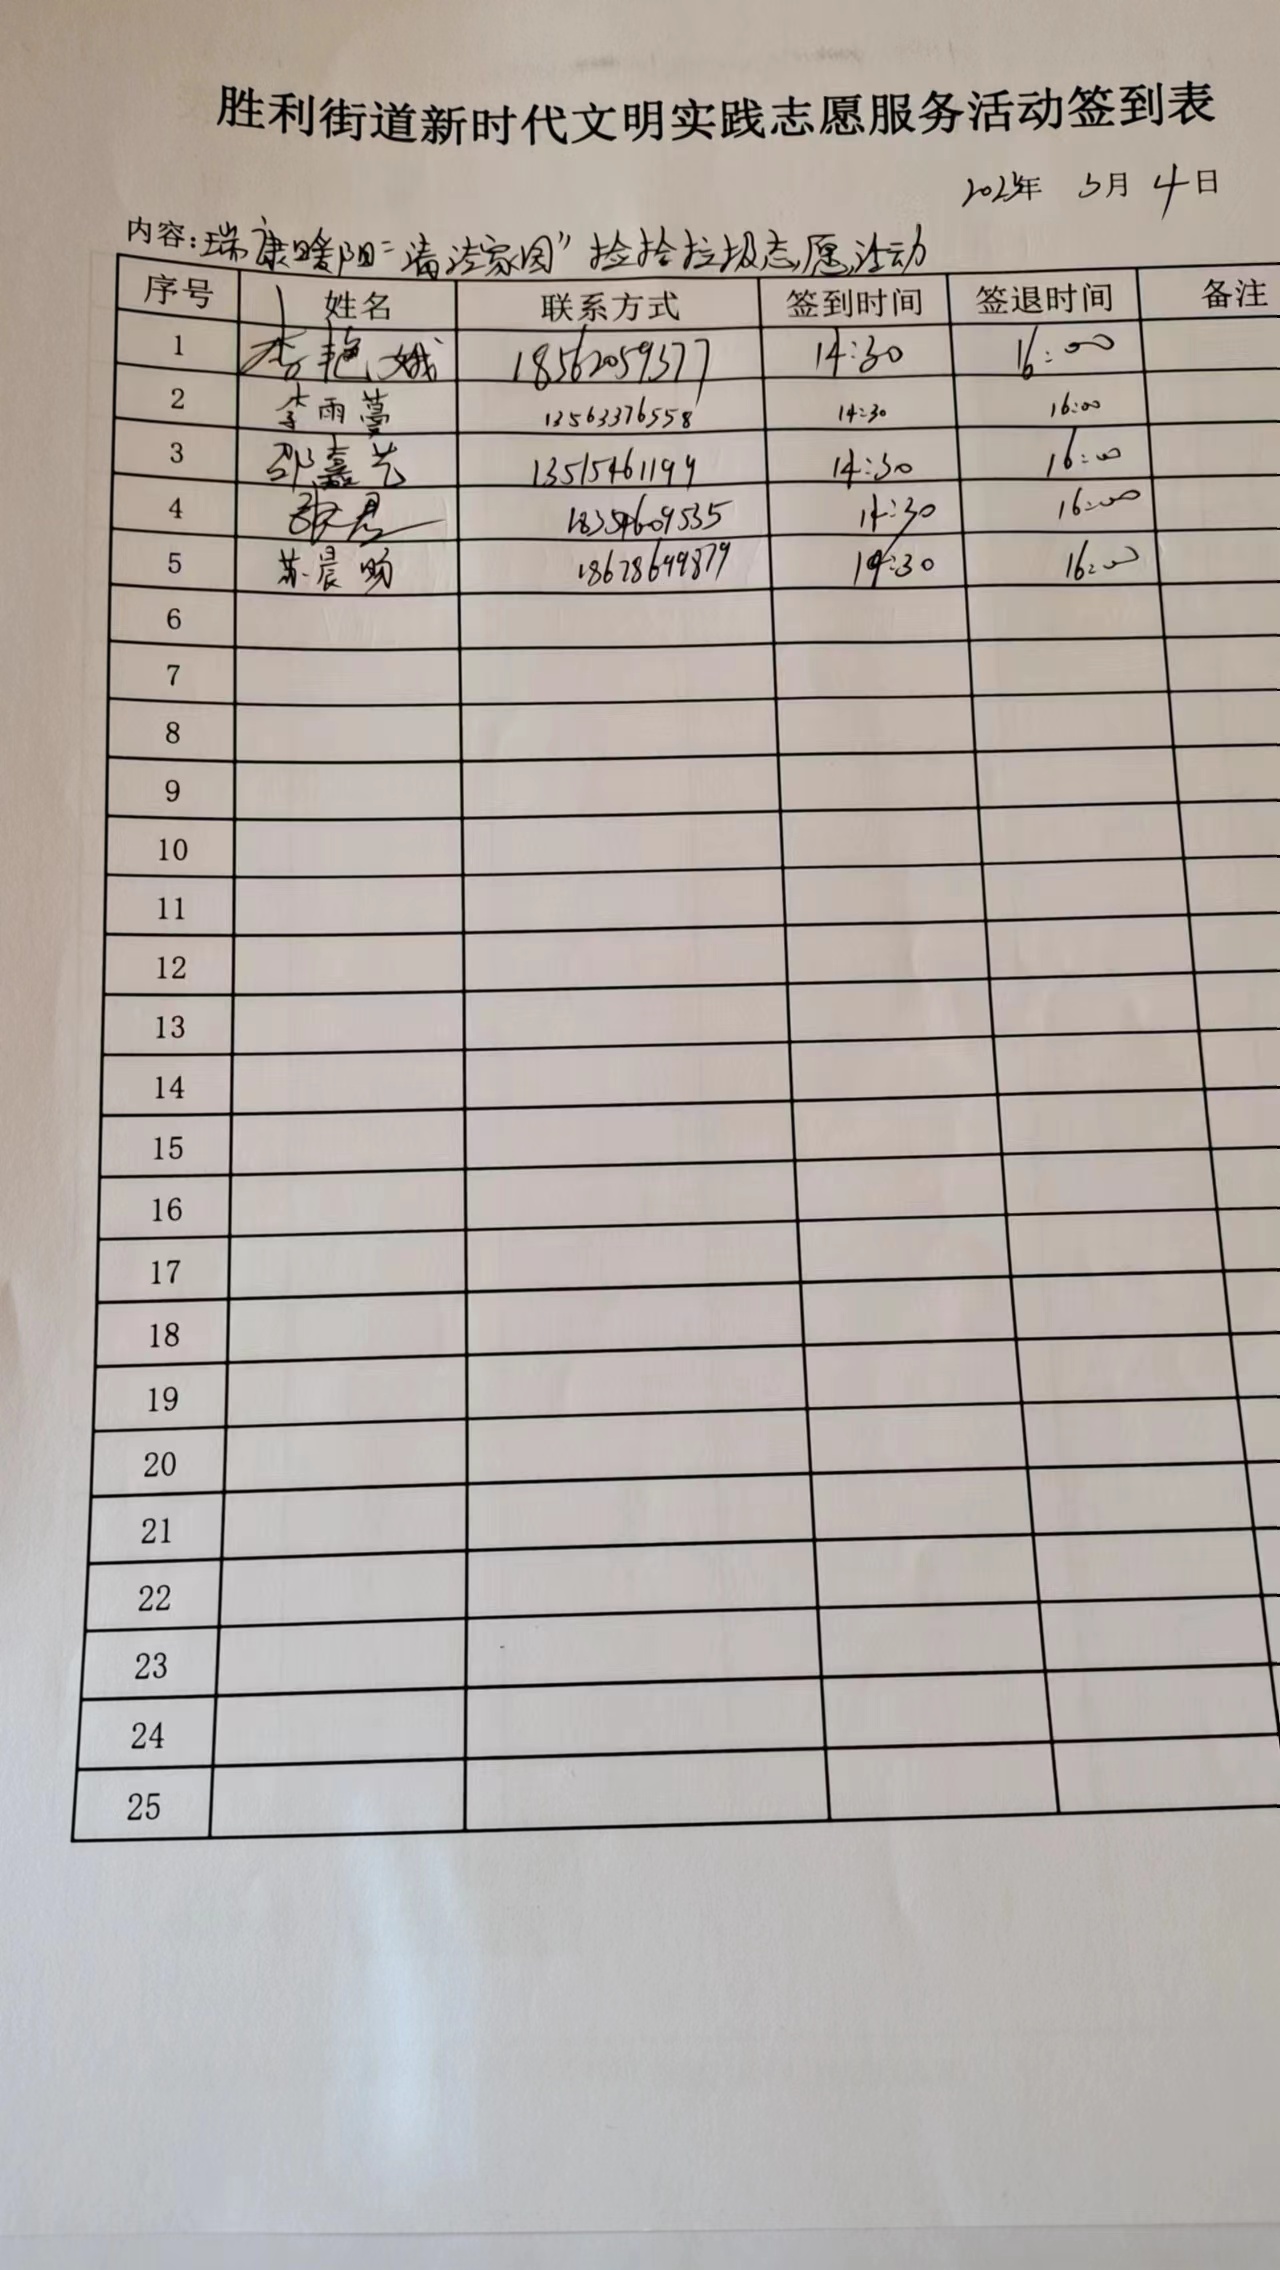 胜利街道新时代文明实践志愿服务活动签到表
年 月 4 日
内容:瑞康暖阳“清洁家园”捡拾垃圾志愿活动
序号 姓名 联系方式 签到时间 签退时间 备注
1 李艳娥 18562059377 14:30 16:00
2 李雨蔓 13563376558 14:30 16:00
3 邵嘉艺 13515461194 14:30 16:00
4 18354609535 14:30 16:00
5 苏晨 14:30 16:00
6
7
8
9
10
11
12
13
14
15
16
17
18
19
20
21
22
23
24
25